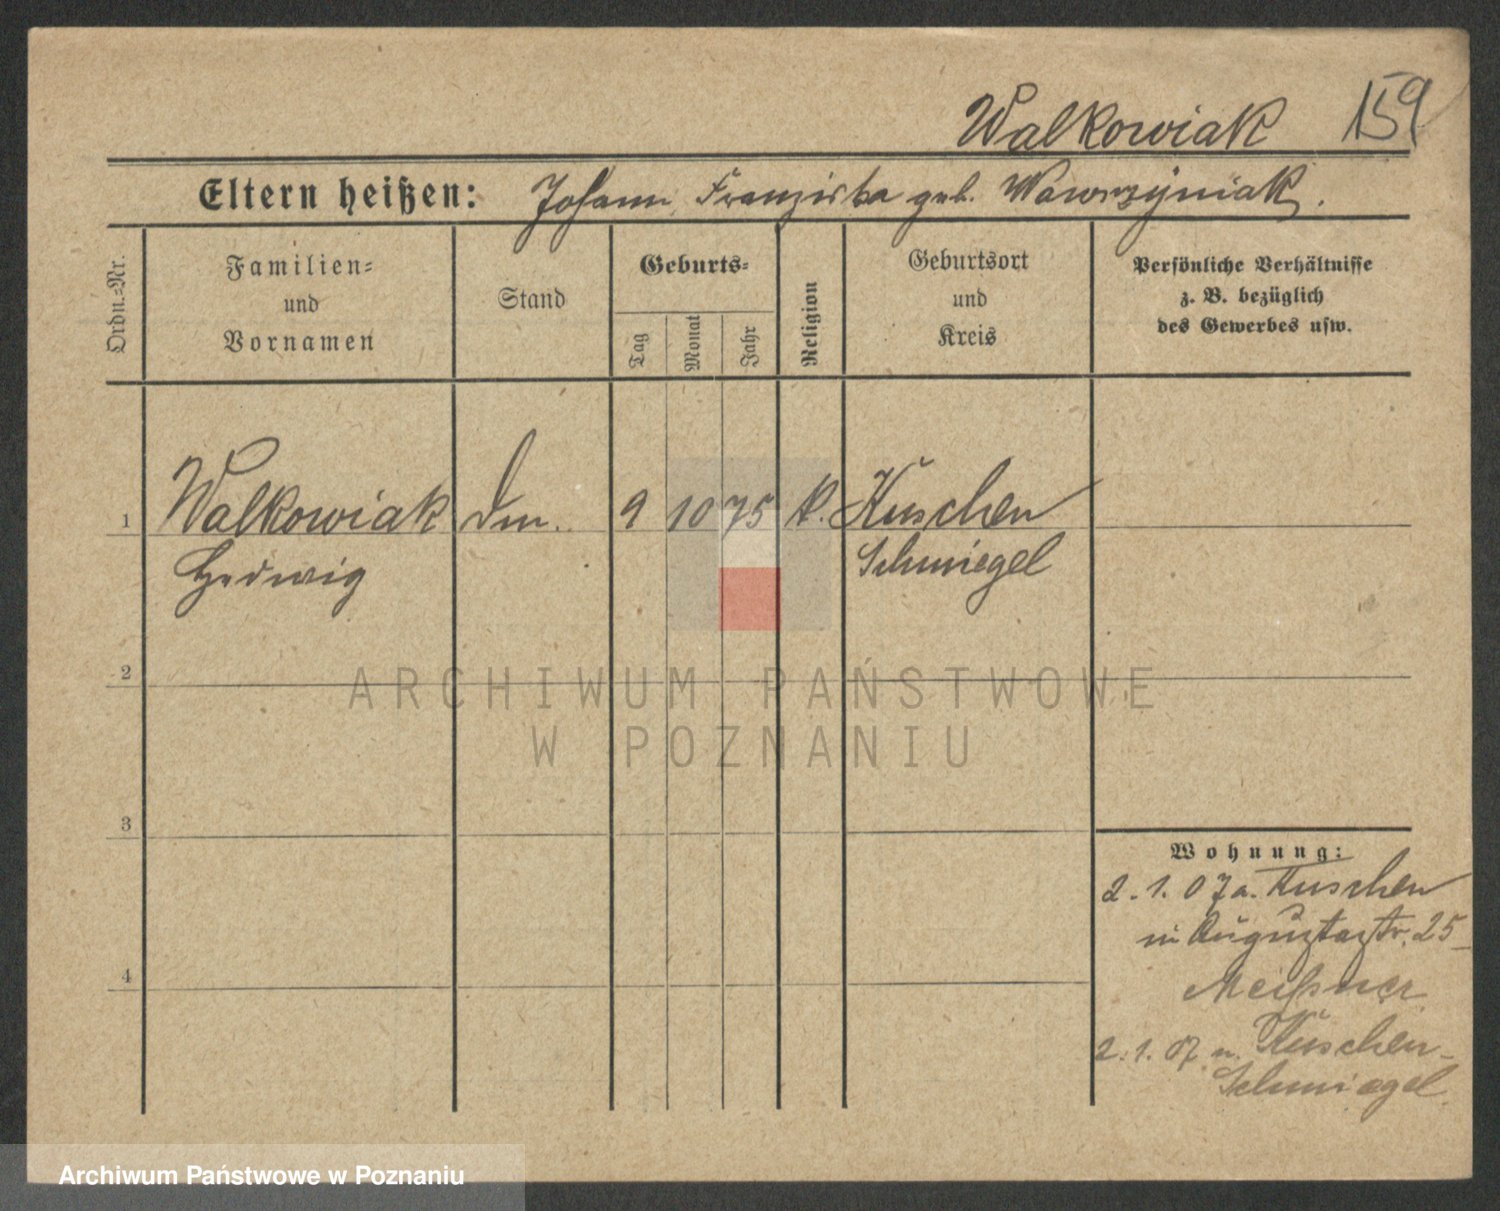 Walkowiak 159
Eltern heißen: Johann, Franziska geb. Wawrzyniak.
Ordn.-Nr.
Familien-
und
Vornamen
Stand
Geburts-
Tag
Monat
Jahr
Religion
Geburtsort
und
Kreis
Persönliche Verhältnisse
z. B. bezüglich
des Gewerbes usw.
1 Walkowiak 9 10 75 k. Kuschen
Hedwig Schmiegel
2
3
4
Wohnung:
2.1.07 a. Kuschen
in Augustastr. 25
Meißner
2.1.07 n. Kuschen-
Schmiegel
ARCHIWUM PAŃSTWOWE
W POZNANIU
Archiwum Państwowe w Poznaniu